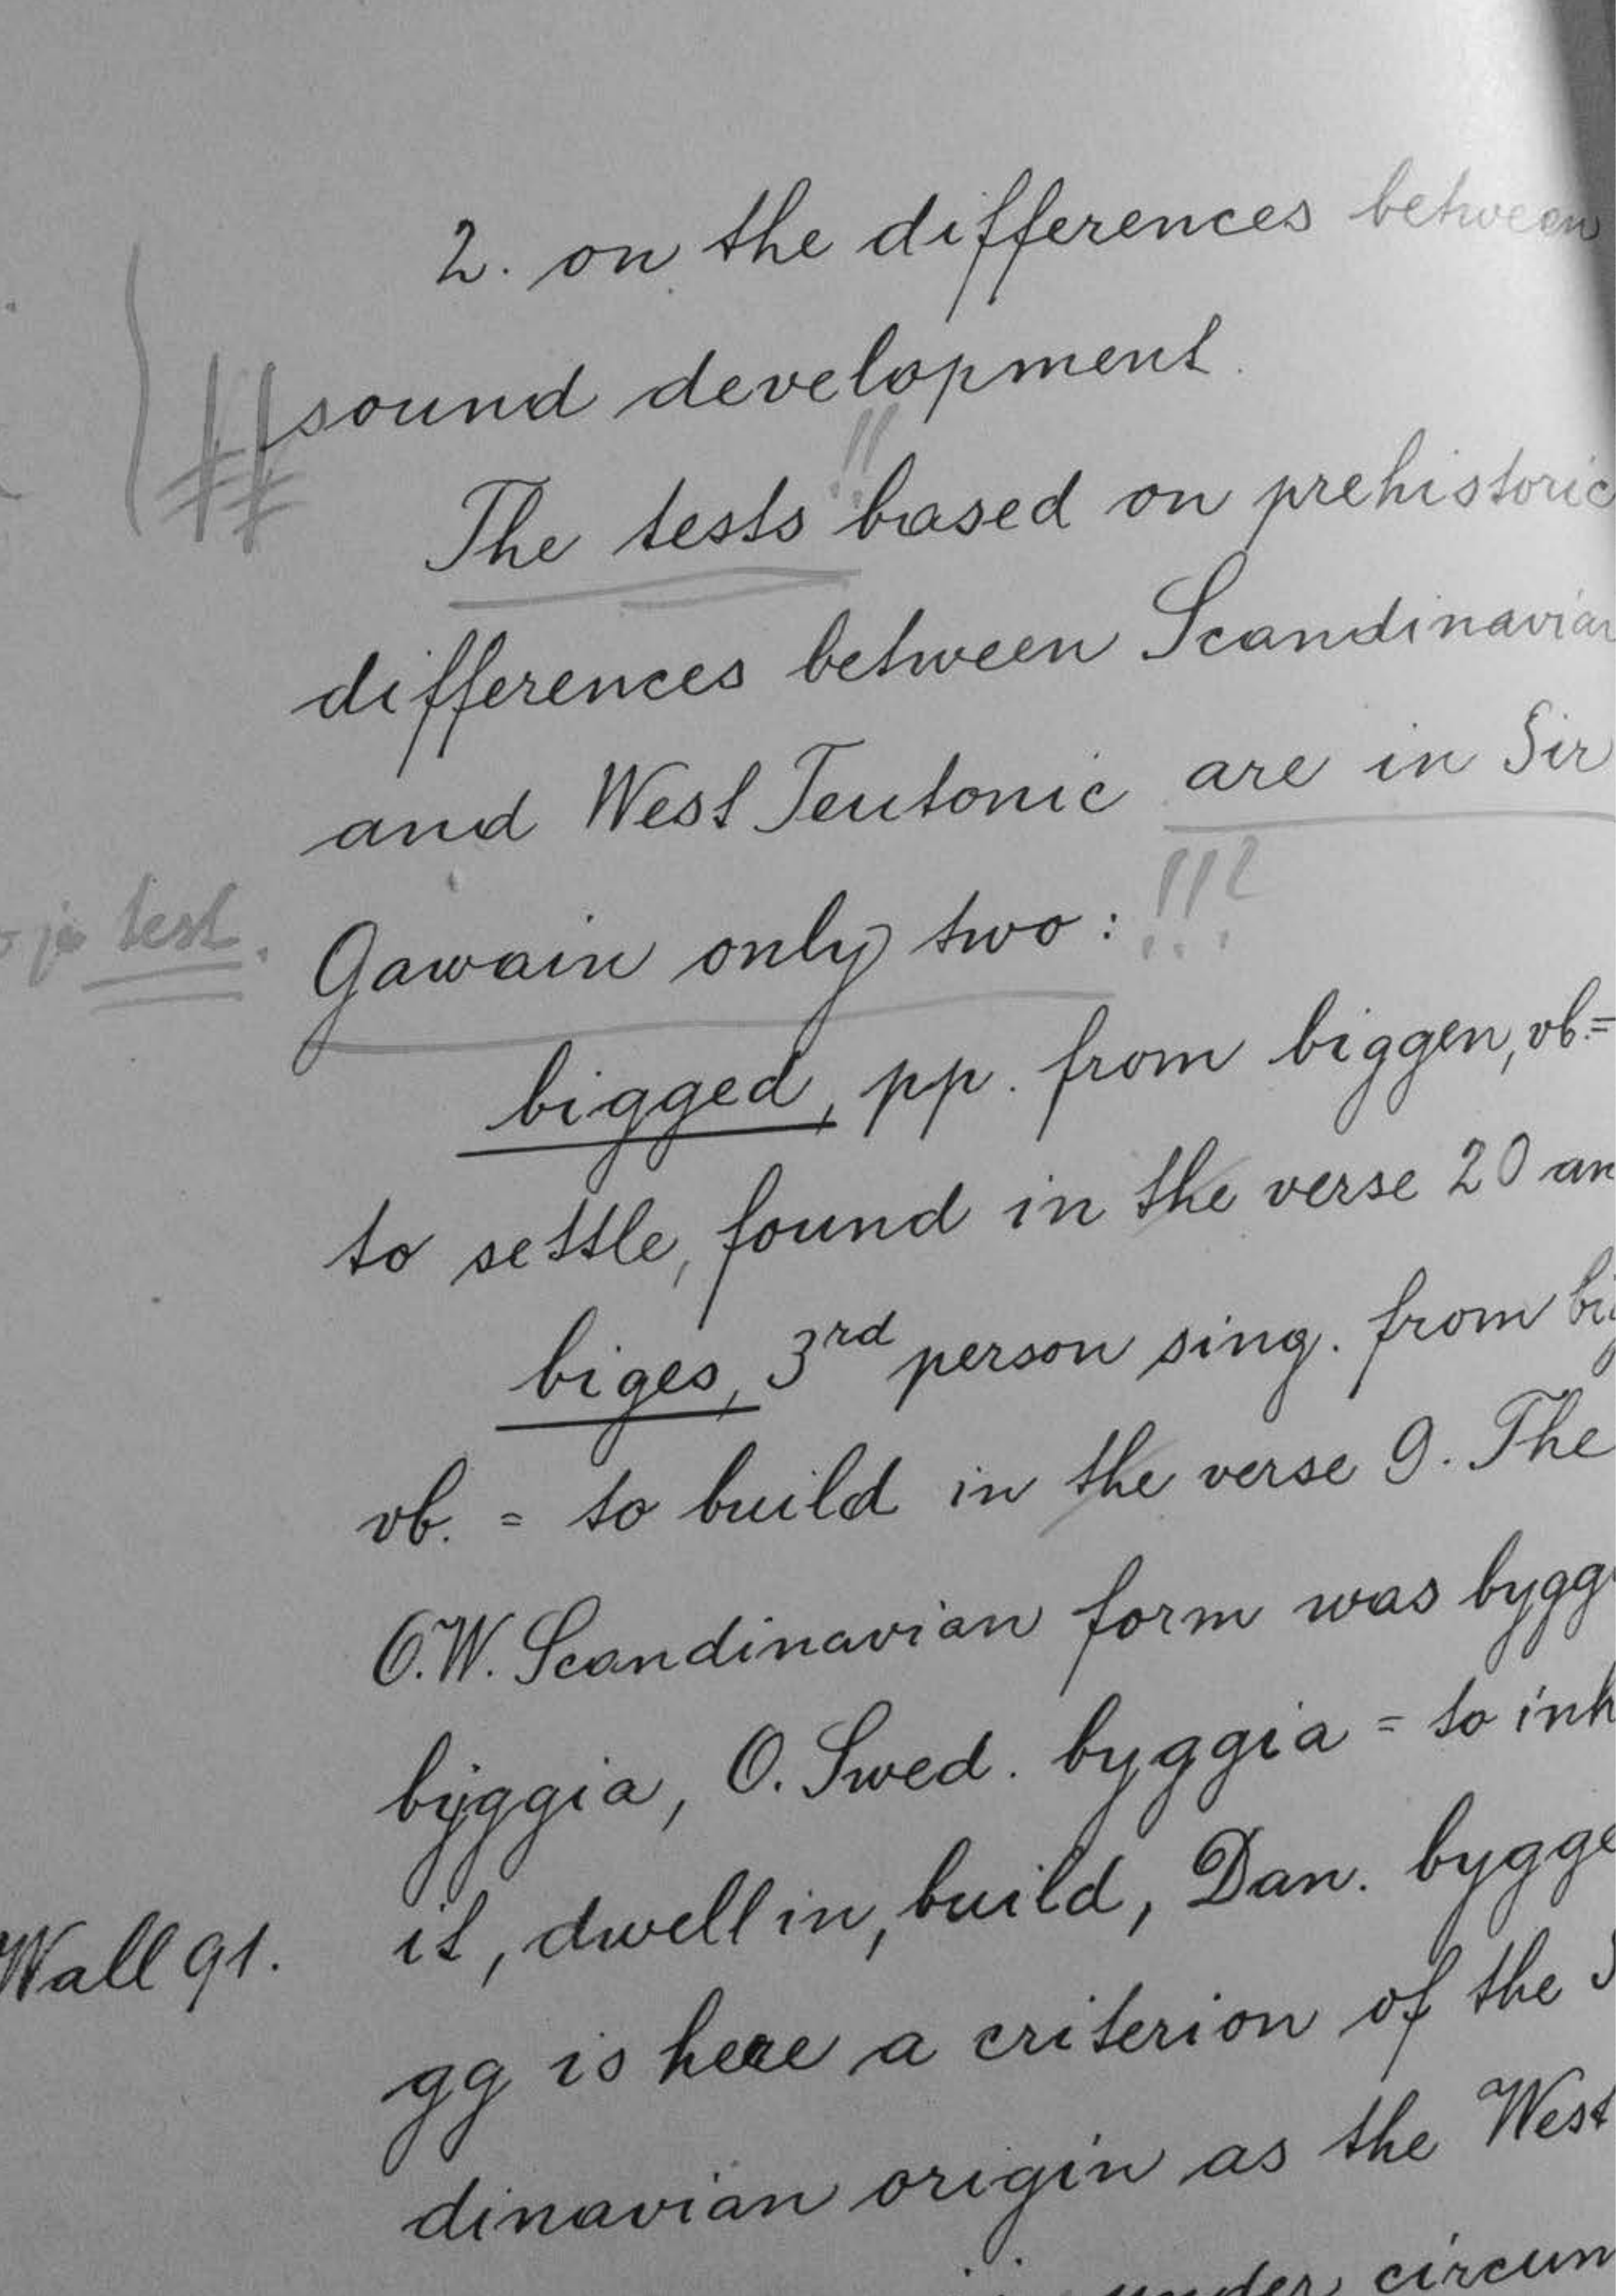 2. on the differences between
sound development.
!!
The tests based on prehistoric
differences between Scandinavian
and West Teutonic are in Sir
!!!
je test.
Gawain only two:
bigged, pp. from biggen, vb. =
to settle, found in the verse 20 an
biges, 3rd person sing. from big
vb. = to build in the verse 9. The
O.W. Scandinavian form was bygg
byggia, O. Swed. byggia = to inh
Wall 91.
it, dwell in, build, Dan. bygge
gg is here a criterion of the S
dinavian origin as the West
under circum